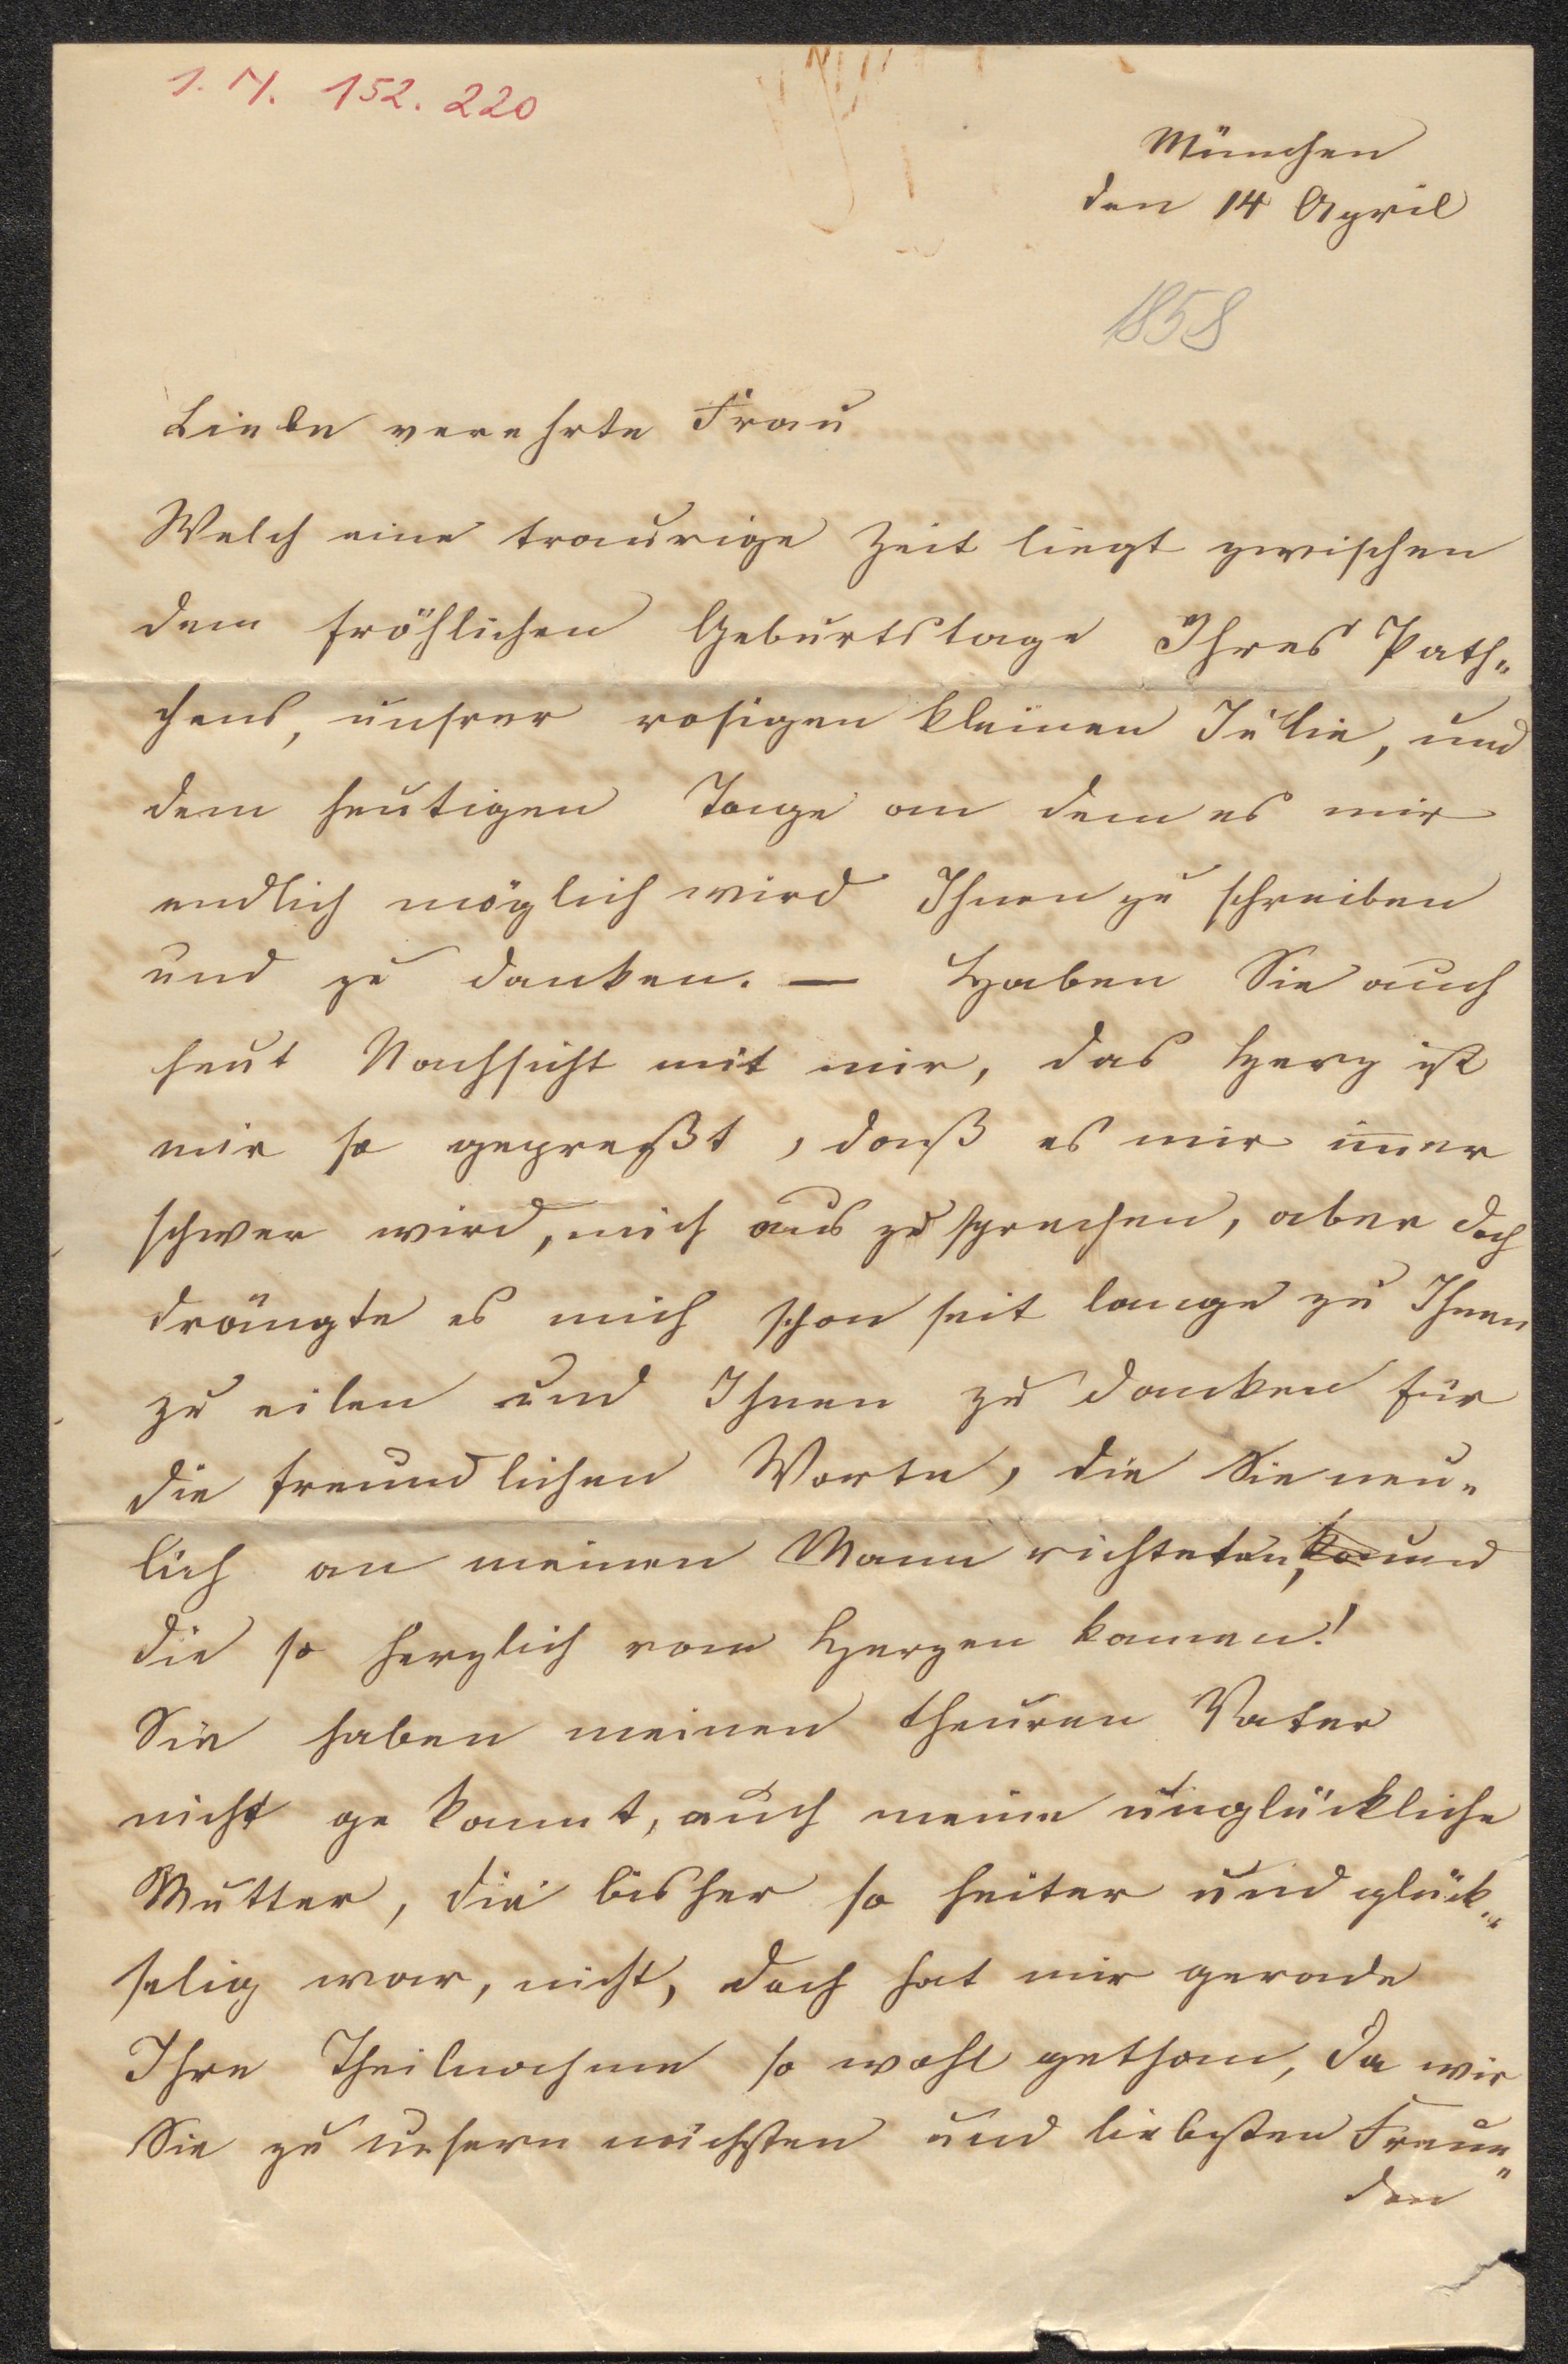 1. N. 152. 220
München
den 14 April
1858
Liebe verehrte Frau
Welch eine traurige Zeit liegt zwischen
dem fröhlichen Geburtstage Ihres Path„
chens, unsrer rosigen kleinen Julie, und
dem heutigen Tage an dem es mir
endlich möglich wird Ihnen zu schreiben
und zu danken. — Haben Sie auch
heut Nachsicht mit mir, das Herz ist
mir so gepreßt, daß es mir im̄er
schwer wird, mich aus zu sprechen, aber doch
drängte es mich schon seit lange zu Ihnen
zu eilen und Ihnen zu danken für
die freundlichen Worte, die Sie neu„
lich an meinen Mann richteten, und
die so herzlich vom Herzen kamen!
Sie haben meinen theuren Vater
nicht ge kannt, auch meine unglückliche
Mutter, die bisher so heiter und glück„
selig war, nicht, doch hat mir gerade
Ihre Theilnahme so wohl gethan, da wir
Sie zu unsern nächsten und liebsten Freun„
den